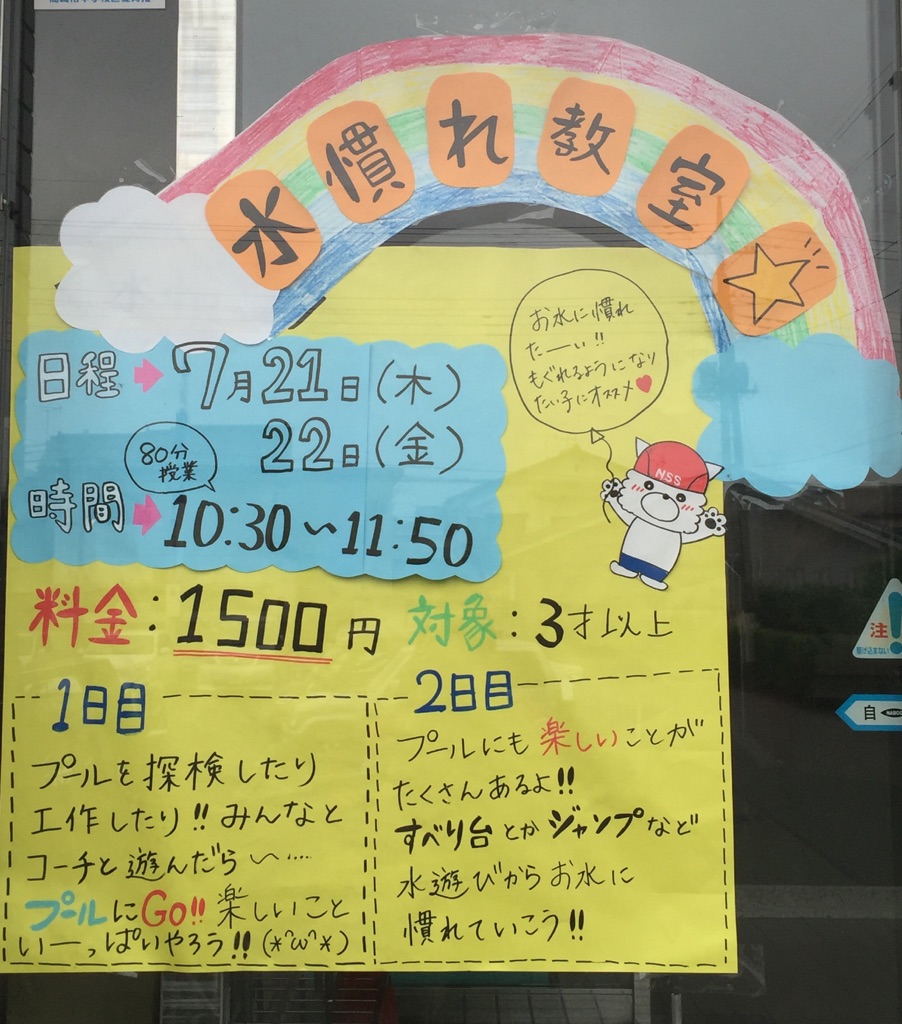 水慣れ教室☆
お水に慣れ
たーい!!
もぐれるようになり
たい子にオススメ♥
日程➡7月21日(木)
22日(金)
80分
授業
時間➡10:30〜11:50
NSS
料金:1500円 対象:3才以上
1日目
プールを探検したり
工作したり!!みんなと
コーチと遊んだら〜……
プールにGo!!楽しいこと
いーっぱいやろう!!(*^ω^*)
2日目
プールにも楽しいことが
たくさんあるよ!!
すべり台とかジャンプなど
水遊びからお水に
慣れていこう!!
注
駆け込まない
自
NABCO